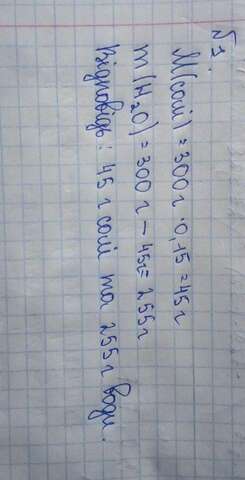 №1.
M(солі) = 300 г · 0,15 = 45 г
m(H₂O) = 300 г − 45г = 255 г
Відповідь: 45 г солі та 255 г води.